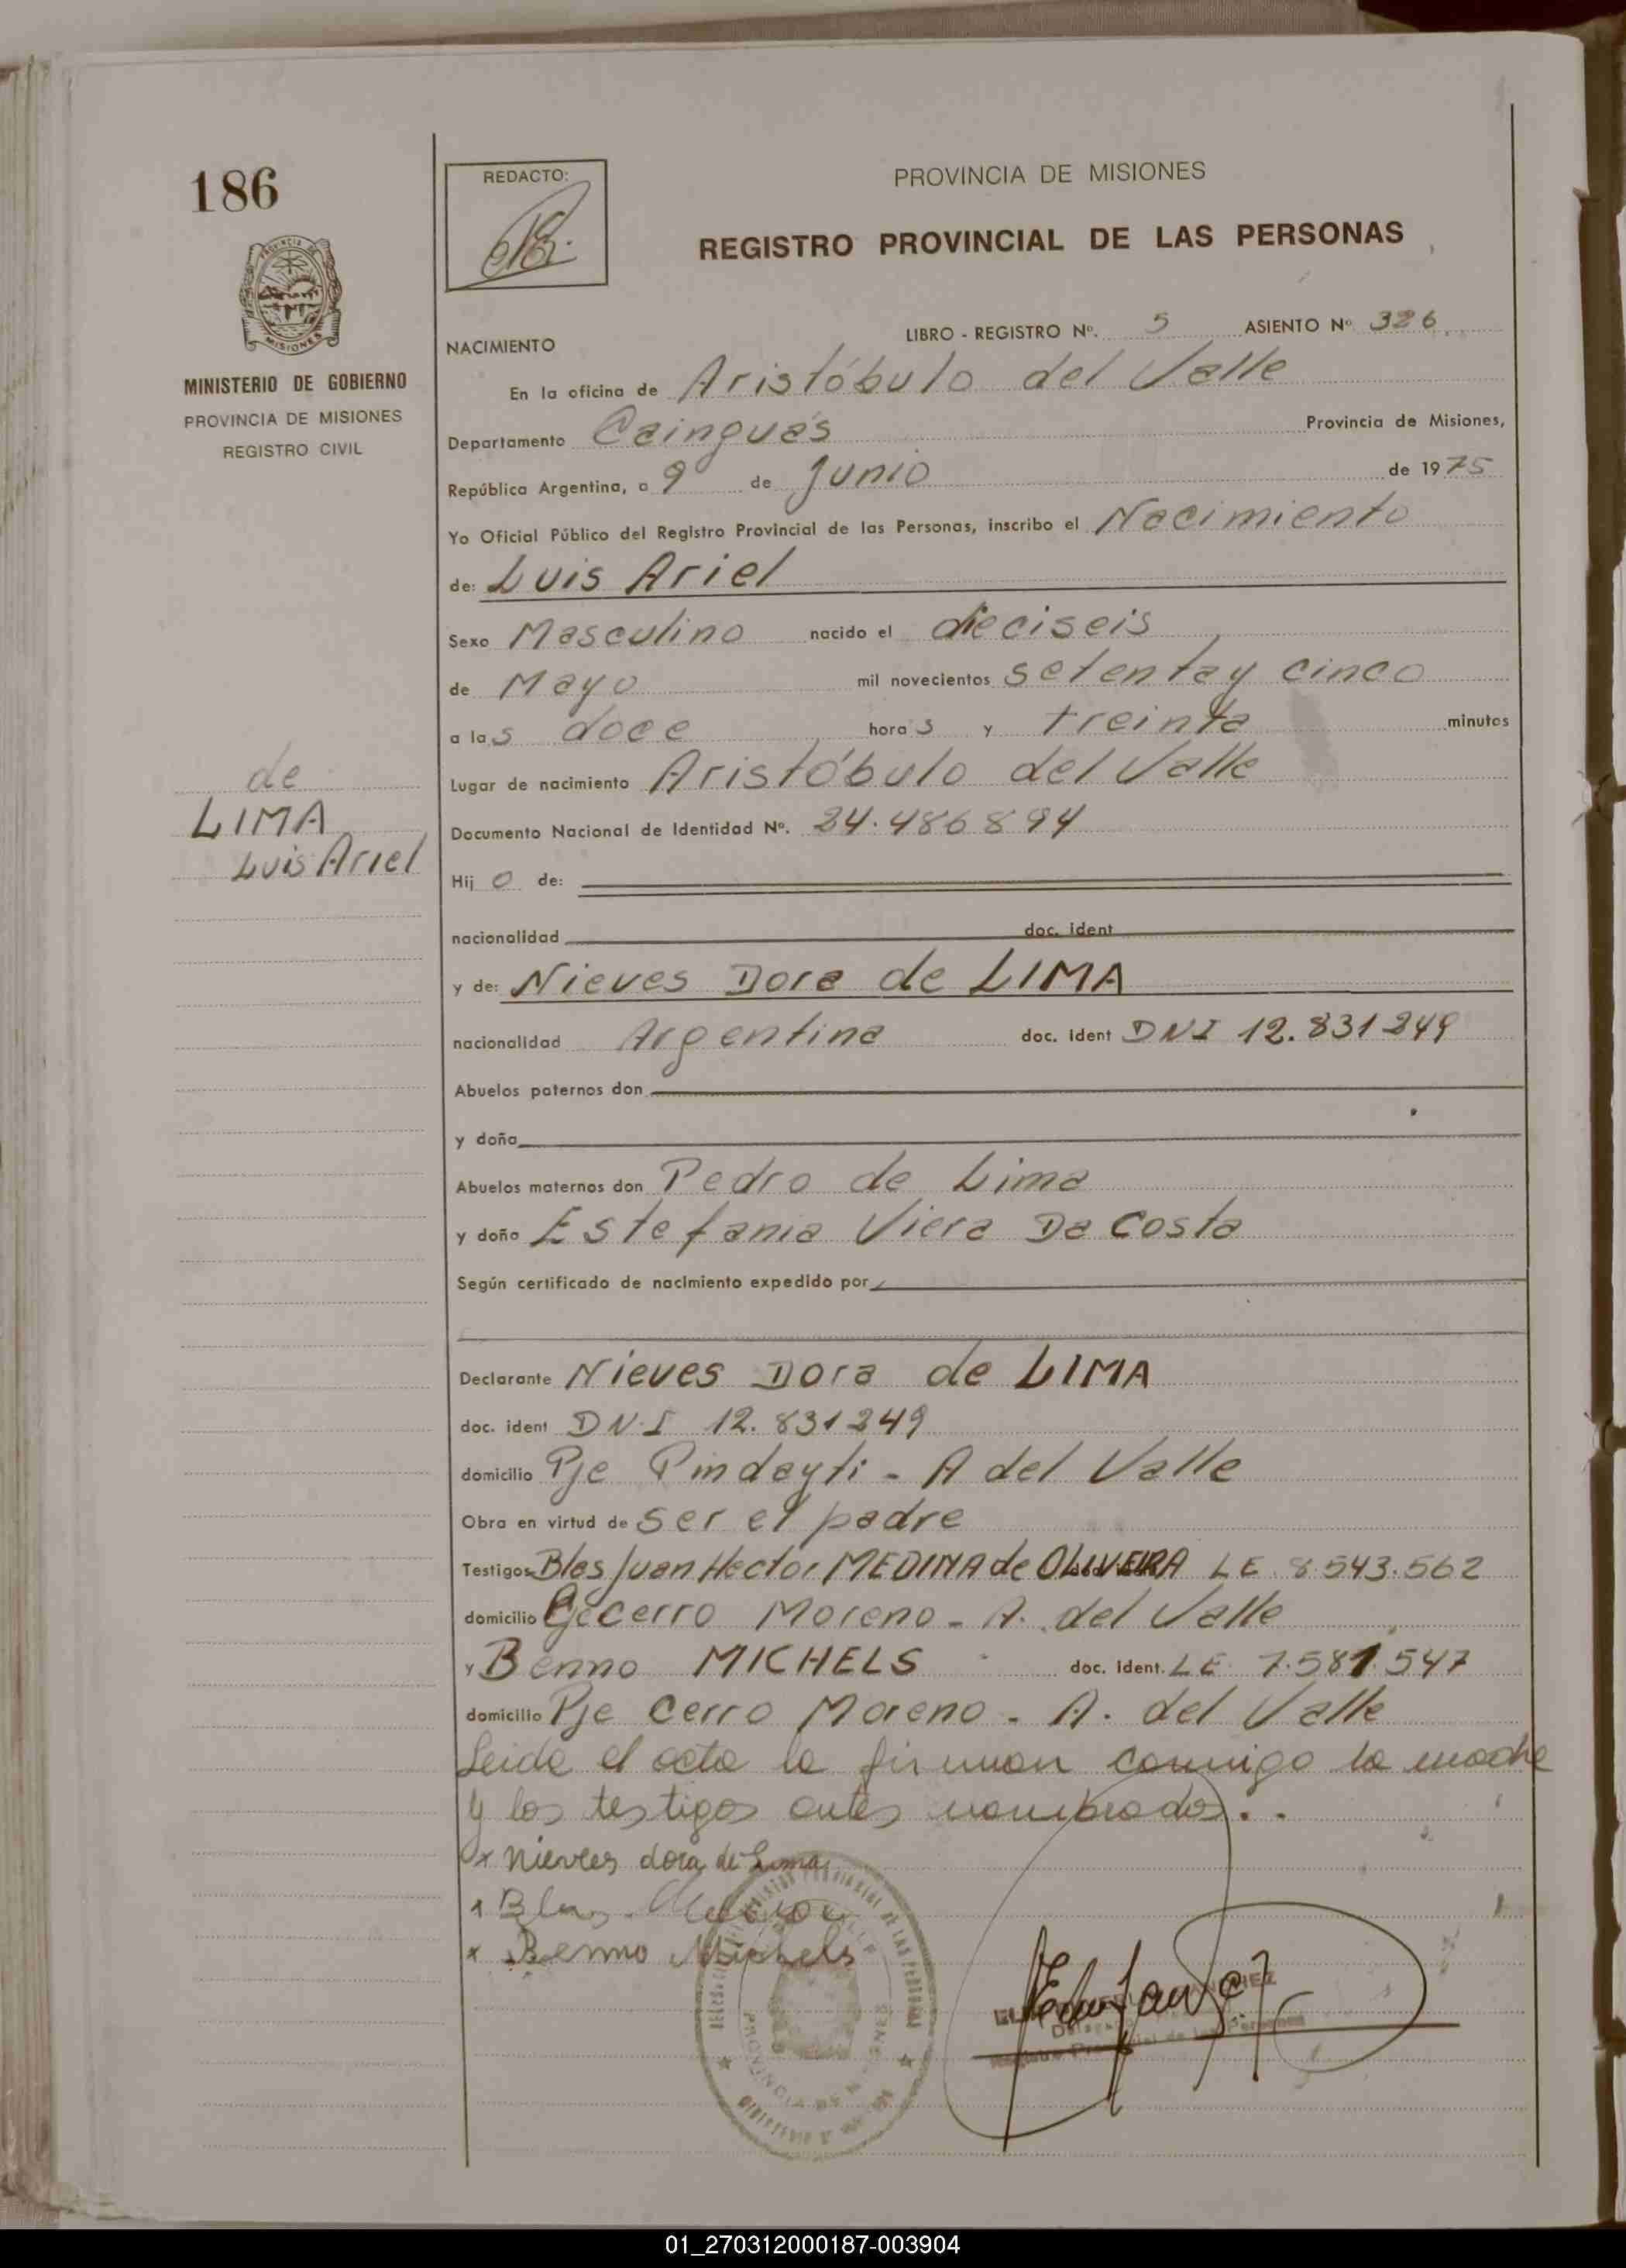 186
REDACTO:
PROVINCIA DE MISIONES
REGISTRO PROVINCIAL DE LAS PERSONAS
MISIONES
MINISTERIO DE GOBIERNO
PROVINCIA DE MISIONES
REGISTRO CIVIL
LIBRO - REGISTRO Nº. 5 ASIENTO Nº 326
NACIMIENTO
En la oficina de Aristóbulo del Valle
Departamento Cainguás Provincia de Misiones,
República Argentina, a 9 de Junio de 1975
Yo Oficial Público del Registro Provincial de las Personas, inscribo el Nacimiento
de: Luis Ariel
Sexo Masculino nacido el dieciseis
de Mayo mil novecientos setenta y cinco
a las doce horas y treinta minutos
Lugar de nacimiento Aristóbulo del Valle
de
LIMA
Luis Ariel
Documento Nacional de Identidad Nº. 24.486894
Hijo de:
nacionalidad doc. ident
y de: Nieves Dora de LIMA
nacionalidad Argentina doc. ident DNI 12.831249
Abuelos paternos don
y doña
Abuelos maternos don Pedro de Lima
y doña Estefania Viera Da Costa
Según certificado de nacimiento expedido por
Declarante Nieves Dora de LIMA
doc. ident DN.I 12.831249
domicilio Pje Pindayti - A del Valle
Obra en virtud de ser el padre
Testigos Blas Juan Hector MEDINA de OLIVEIRA LE 8.543.562
domicilio Pje Cerro Moreno - A. del Valle
y Benno MICHELS doc. ident. LE 7.581.547
domicilio Pje Cerro Moreno - A. del Valle
Leida el acta la firman conmigo la madre
y los testigos antes nombrados..
x nieves dora de Lima
x Blas
x Benno Michels
PROVINCIA DE MISIONES
01_270312000187-003904